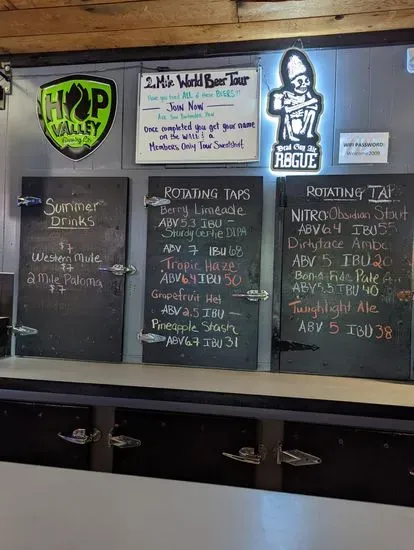 HOP
VALLEY
BREWING CO.
2 Mile World Beer Tour
Have you tried ALL of these BEERS?!
JOIN NOW
Ask Your Bartender How
Once completed you get your name
on the WALL & a
Members Only Tour Sweatshirt
Dead Guy Ale
ROGUE
WIFI PASSWORD:
Welcome2008
Summer
Drinks
$7
Western Mule
$7
2 Mile Paloma
$7
ROTATING TAPS
Berry Limeade
ABV 5.3 IBU -
Sturdy Gertie DIPA
ABV 7 IBU 68
Tropic Haze
ABV 6.4 IBU 50
Grapefruit Hef
ABV 2.5 IBU -
Pineapple Stash
ABV 6.7 IBU 31
ROTATING TAP
NITRO: Obsidian Stout
ABV 6.4 IBU 55
Dirtyface Ambe
ABV 5 IBU 20
Bona Fide Pale
ABV 5.5 IBU 40
Twighlight Ale
ABV 5 IBU 38